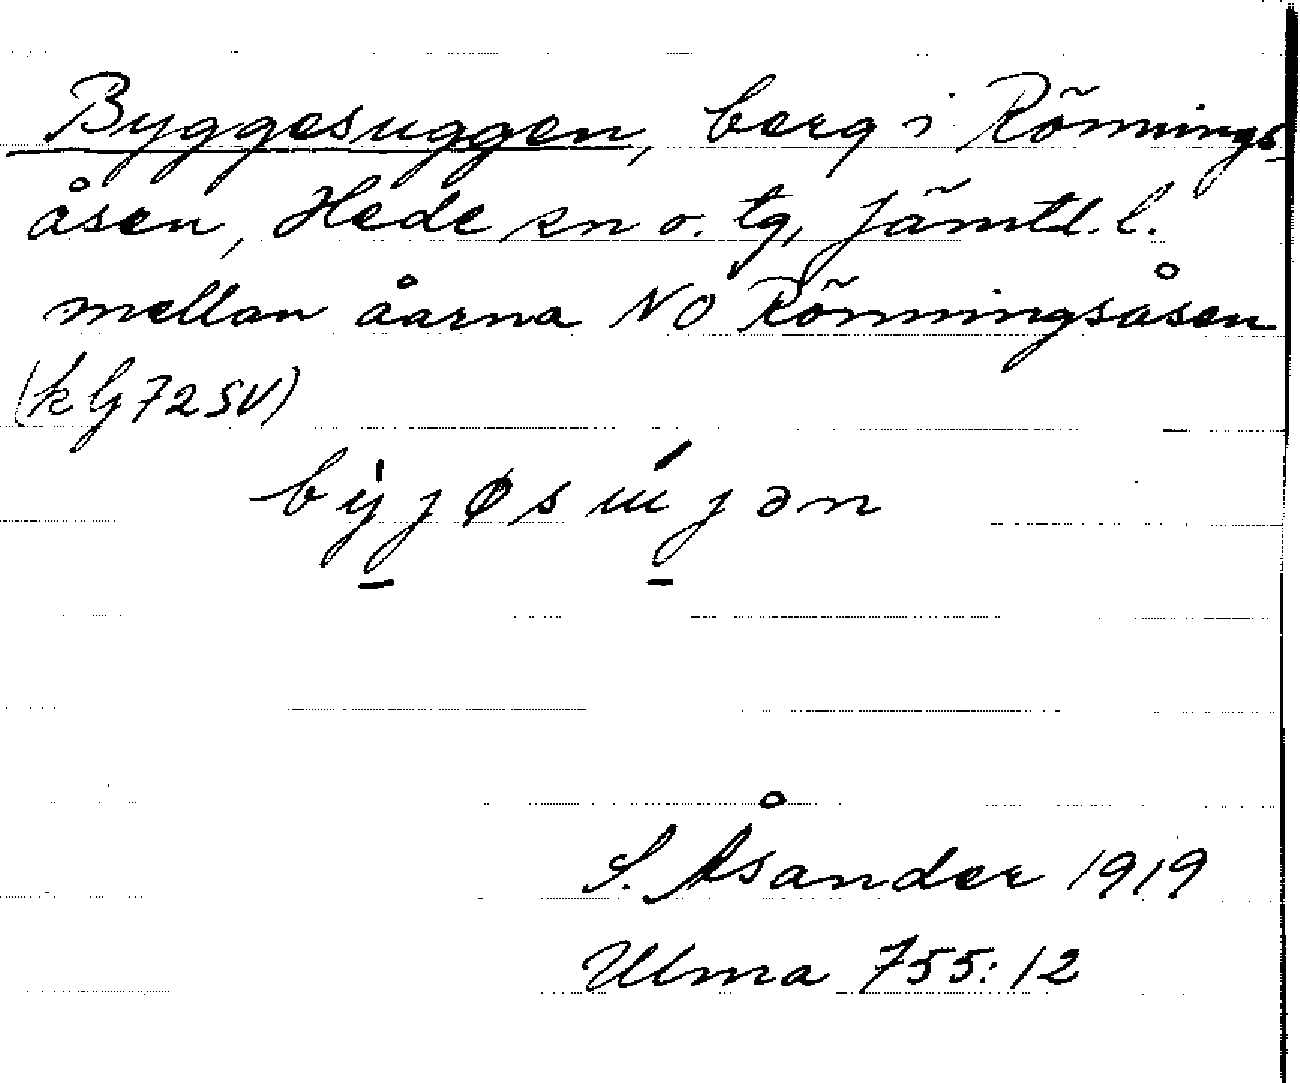 Byggesuggen, berg i Rönnings-
åsen, Hede sn o. tg, Jämtl. l.
mellan åarna NO Rönningsåsen
(k G 72 SV)
S. Åsander 1919
Ulma 755:12